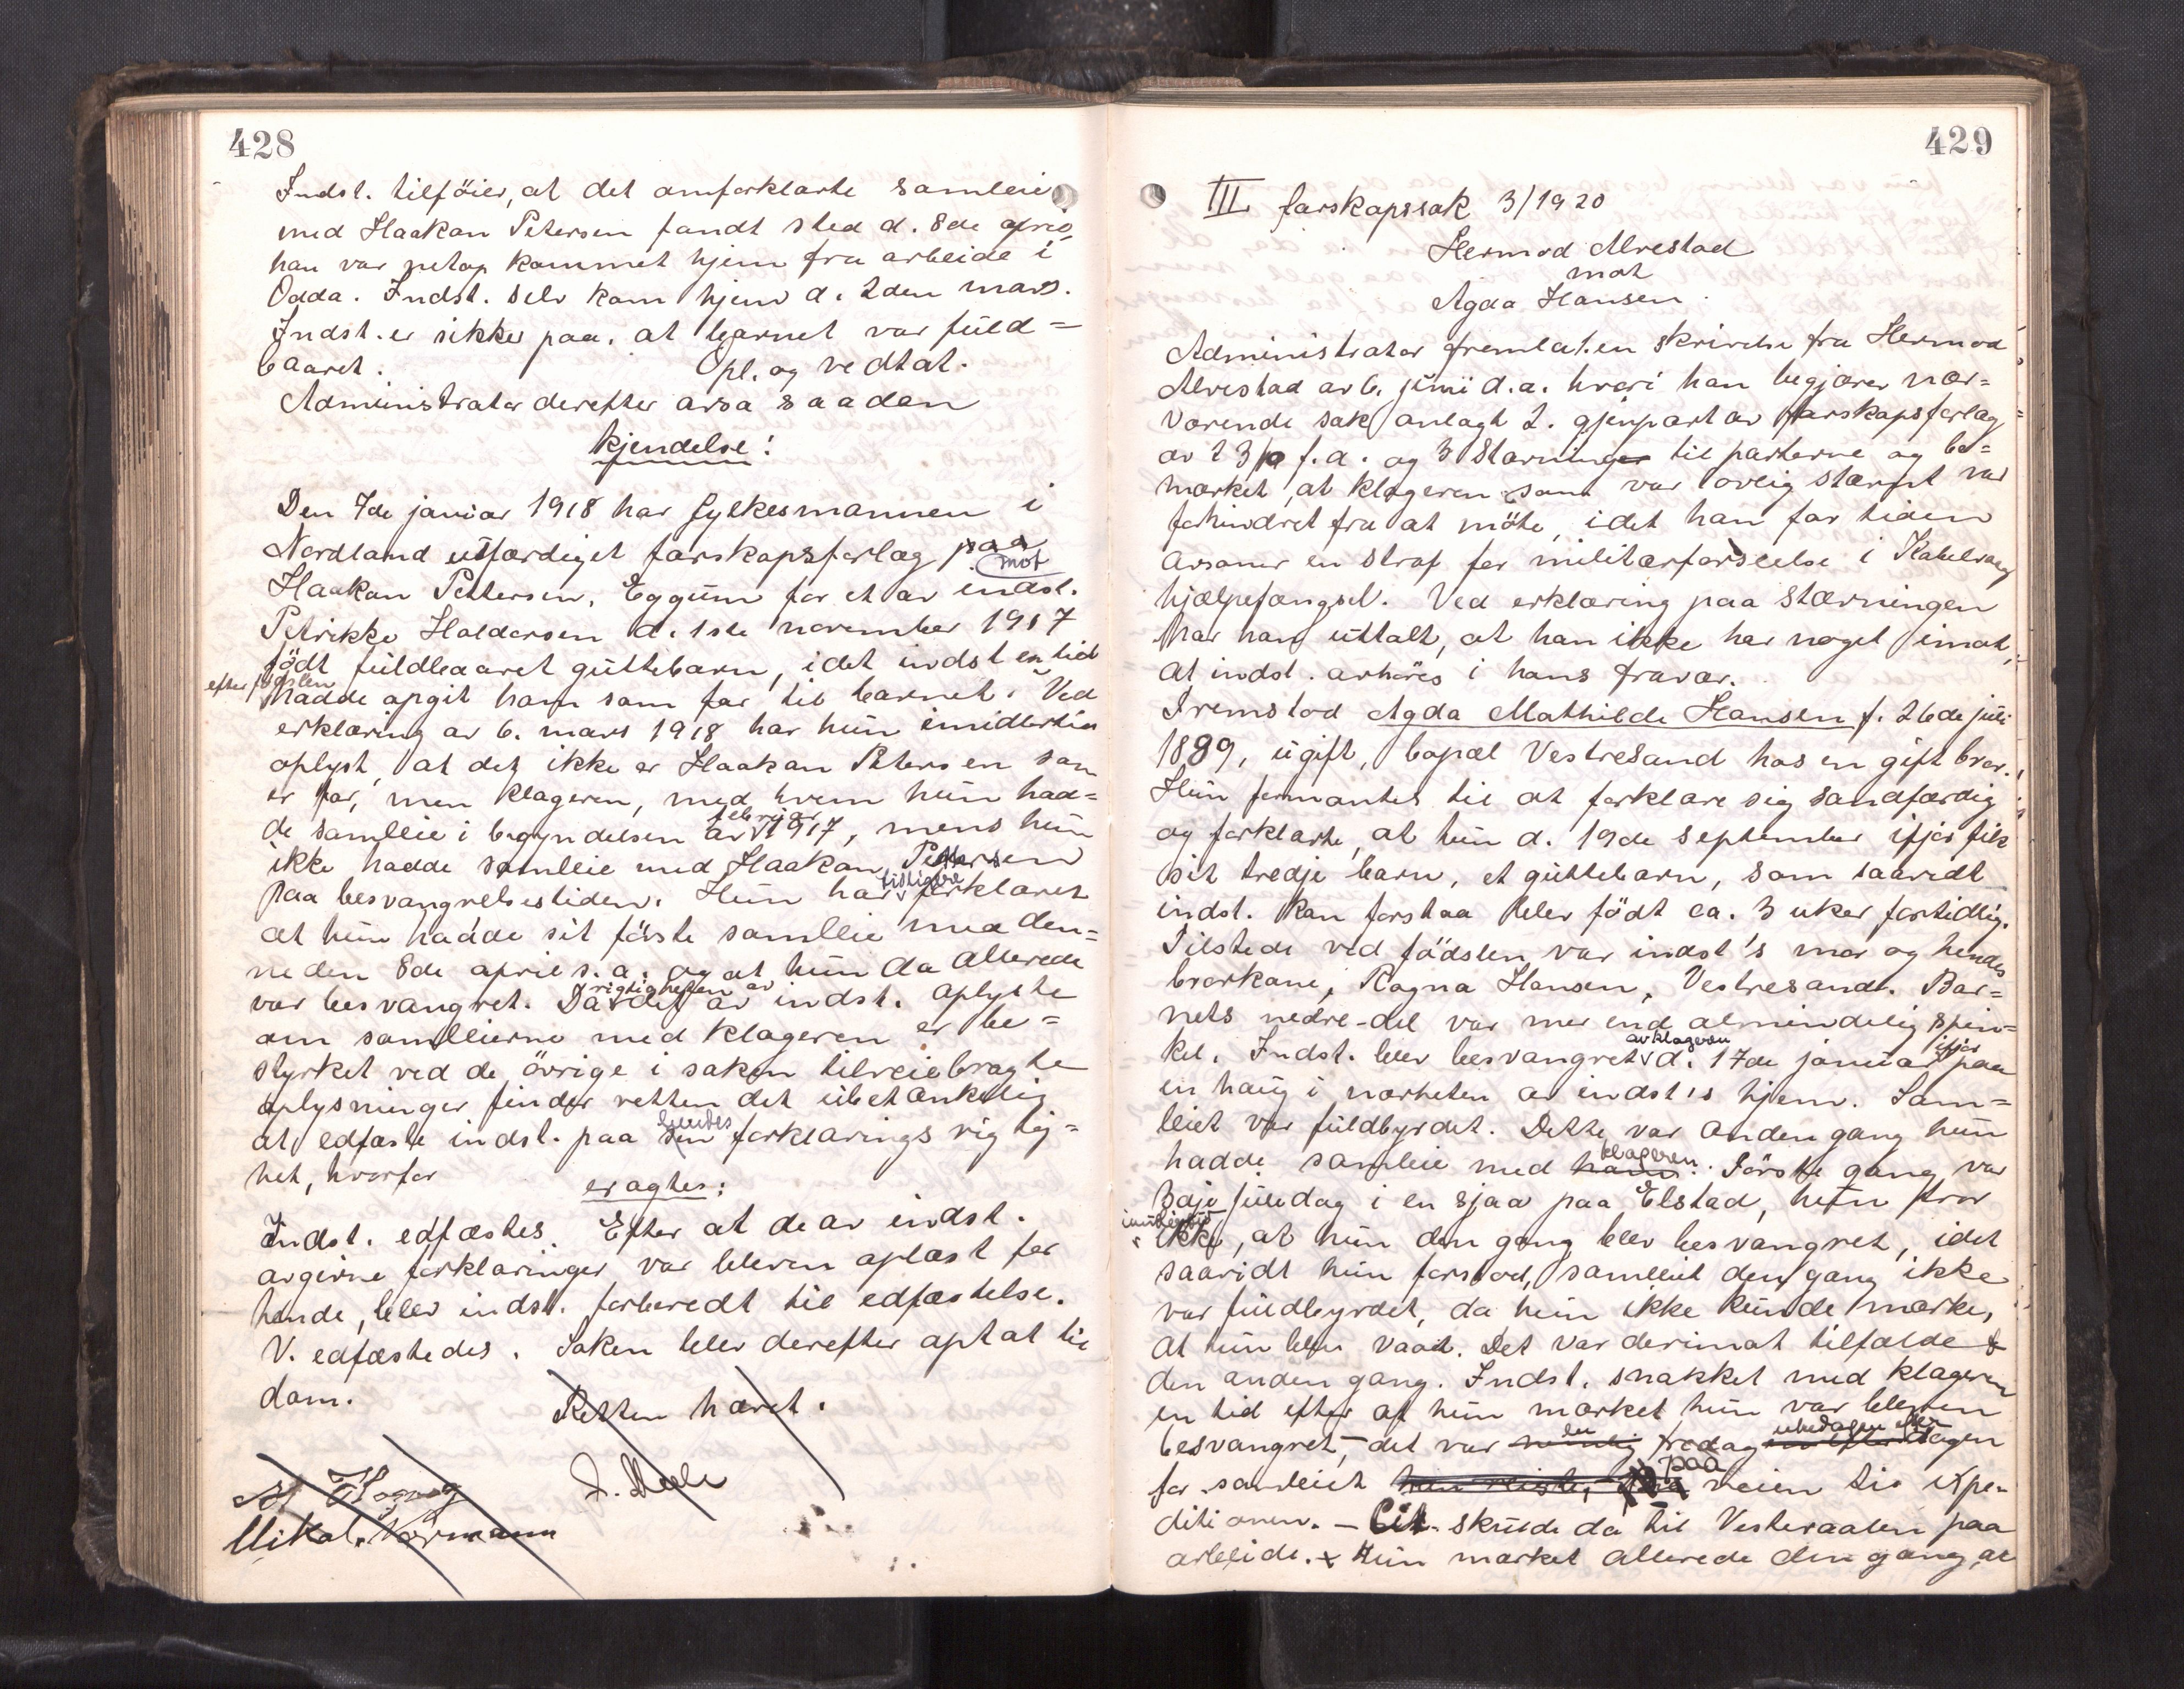 428
Indst. tilföier, at det omforklarte samleie
med Haakon Petersen fandt sted d. 8de april
han var netop kommet hjem fra arbeide i
Odda. Indst. selv kom hjem d. 2den mars.
Indst. er sikker paa, at barnet var fuld=
baaret. Opl. og vedtat.
Administrator derefter avsa saaden
kjendelse:
Den 7de januar 1918 har fylkesmannen i
Nordland utfærdiget farskapsforlæg paa
mot
Haakon Pettersen, Eggum for et av indst.
Petrikke Haldorsen d. 1ste november 1917
födt fuldbaaret guttebarn, idet indst en tid
efter fødslen hadde opgit ham som far til barnet. Ved
erklæring av 6. mars 1918 har hun imidlertid
oplyst, at det ikke er Haakon Petersen som
er far, men klageren, med hvem hun had=
februar
de samleie i begyndelsen av 1917, mens hun
ikke hadde samleie med Haakon Pettersen
tidligere
paa besvangrelsestiden. Hun har forklaret
at hun hadde sit förste samleie med den=
ne den 8de april s.a. og at hun da allerede
rigtigheten av
var besvangret. Da det av indst. oplyste
om samleierne med klageren er be=
styrket ved de övrige i saken tilveiebragte
oplysninger finder retten det ubetænkelig
hendes
at edfæste indst. paa sin forklarings rigtig=
het, hvorfor
eragtes:
Indst. edfæstes. Efter at de av indst.
avgivne forklaringer var bleven oplæst for
hende, blev indst. forberedt til edfæstelse.
V. edfæstedes. Saken blev derefter optat til
dom.
Retten hævet.
Mikal. Normann
429
III farskapssak 3/1920
Hermod Alvestad
mot
Agda Hansen.
Administrator fremla 1. en skrivelse fra Hermod
Alvestad av 6. juni d.a. hvori han begjærer nær=
værende sak anlagt 2. gjenpart av farskapsforlæg
av 23/10 f.a. og 3 stævninger til parterne og be=
mærket, at klageren som var lovlig stævnt var
forhindret fra at möte, idet han for tiden
avsoner en straf for militærforseelse i Kabelvaag
hjælpefængsel. Ved erklæring paa stævningen
har han uttalt, at han ikke har noget imot,
at indst. avhöres i hans fravær.
Fremstod Agda Mathilde Hansen f. 26de juli
1889, ugift, bopæl Vestresand hos en gift bror.
Hun formantes til at forklare sig sandfærdig
og forklarte, at hun d. 19de september ifjor fik
sit tredje barn, et guttebarn, som saavidt
indst. kan forstaa blev födt ca. 3 uker fortidlig.
Tilstede ved födslen var indst's mor og hendes
brorkone, Ragna Hansen, Vestresand. Bar=
nets nedre-del var mer end almindelig spin=
av klageren ifjor
kel. Indst. blev besvangret d. 17de januar paa
en haug i nærheten av indst's hjem. Sam=
leiet var fuldbyrdet. Dette var anden gang hun
klageren
hadde samleie med ham. Förste gang var
3dje juledag i en sjaa paa Elstad, hun tror
imidlertid
ikke, at hun den gang blev besvangret, idet
saavidt hun forstod, samleiet den gang ikke
var fuldbyrdet, da hun ikke kunde mærke,
at hun blev vaat. Det var derimot tilfælde
den anden gang. Indst. snakket med klageren
en tid efter at hun mærket hun var bleven
ukedagen efter
besvangret, - det var fredag dagen
paa
for samleiet veien til expe-
ditionen. - Cit. skulde da til Vesteraalen paa
arbeide. x Hun mærket allerede den gang, at